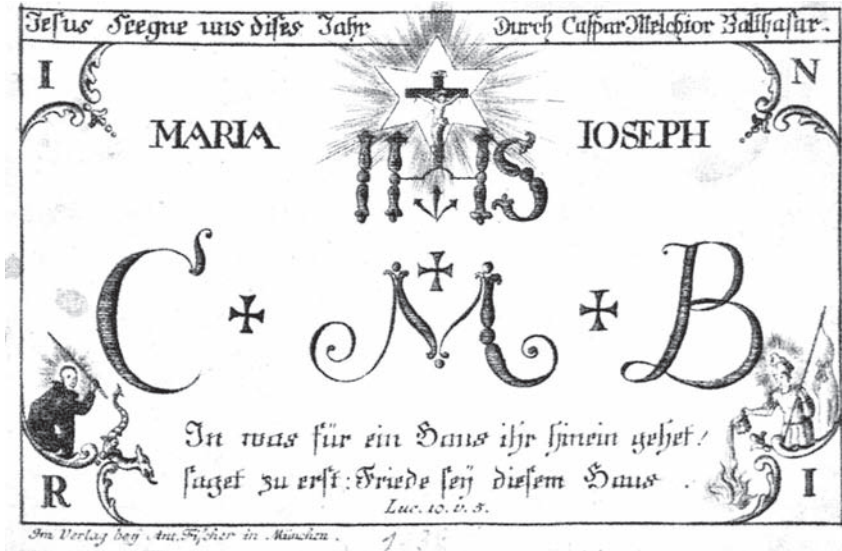 Jesus Seegne uns dises Jahr Durch Caspar Melchior Balthasar.
I N
MARIA IHS IOSEPH
C + M + B
In was für ein Haus ihr hinein gehet!
saget zu erst: Friede seÿ diesem Haus.
Luc. 10. v. 5.
R I
Im Verlag beÿ Ant. Fischer in München.